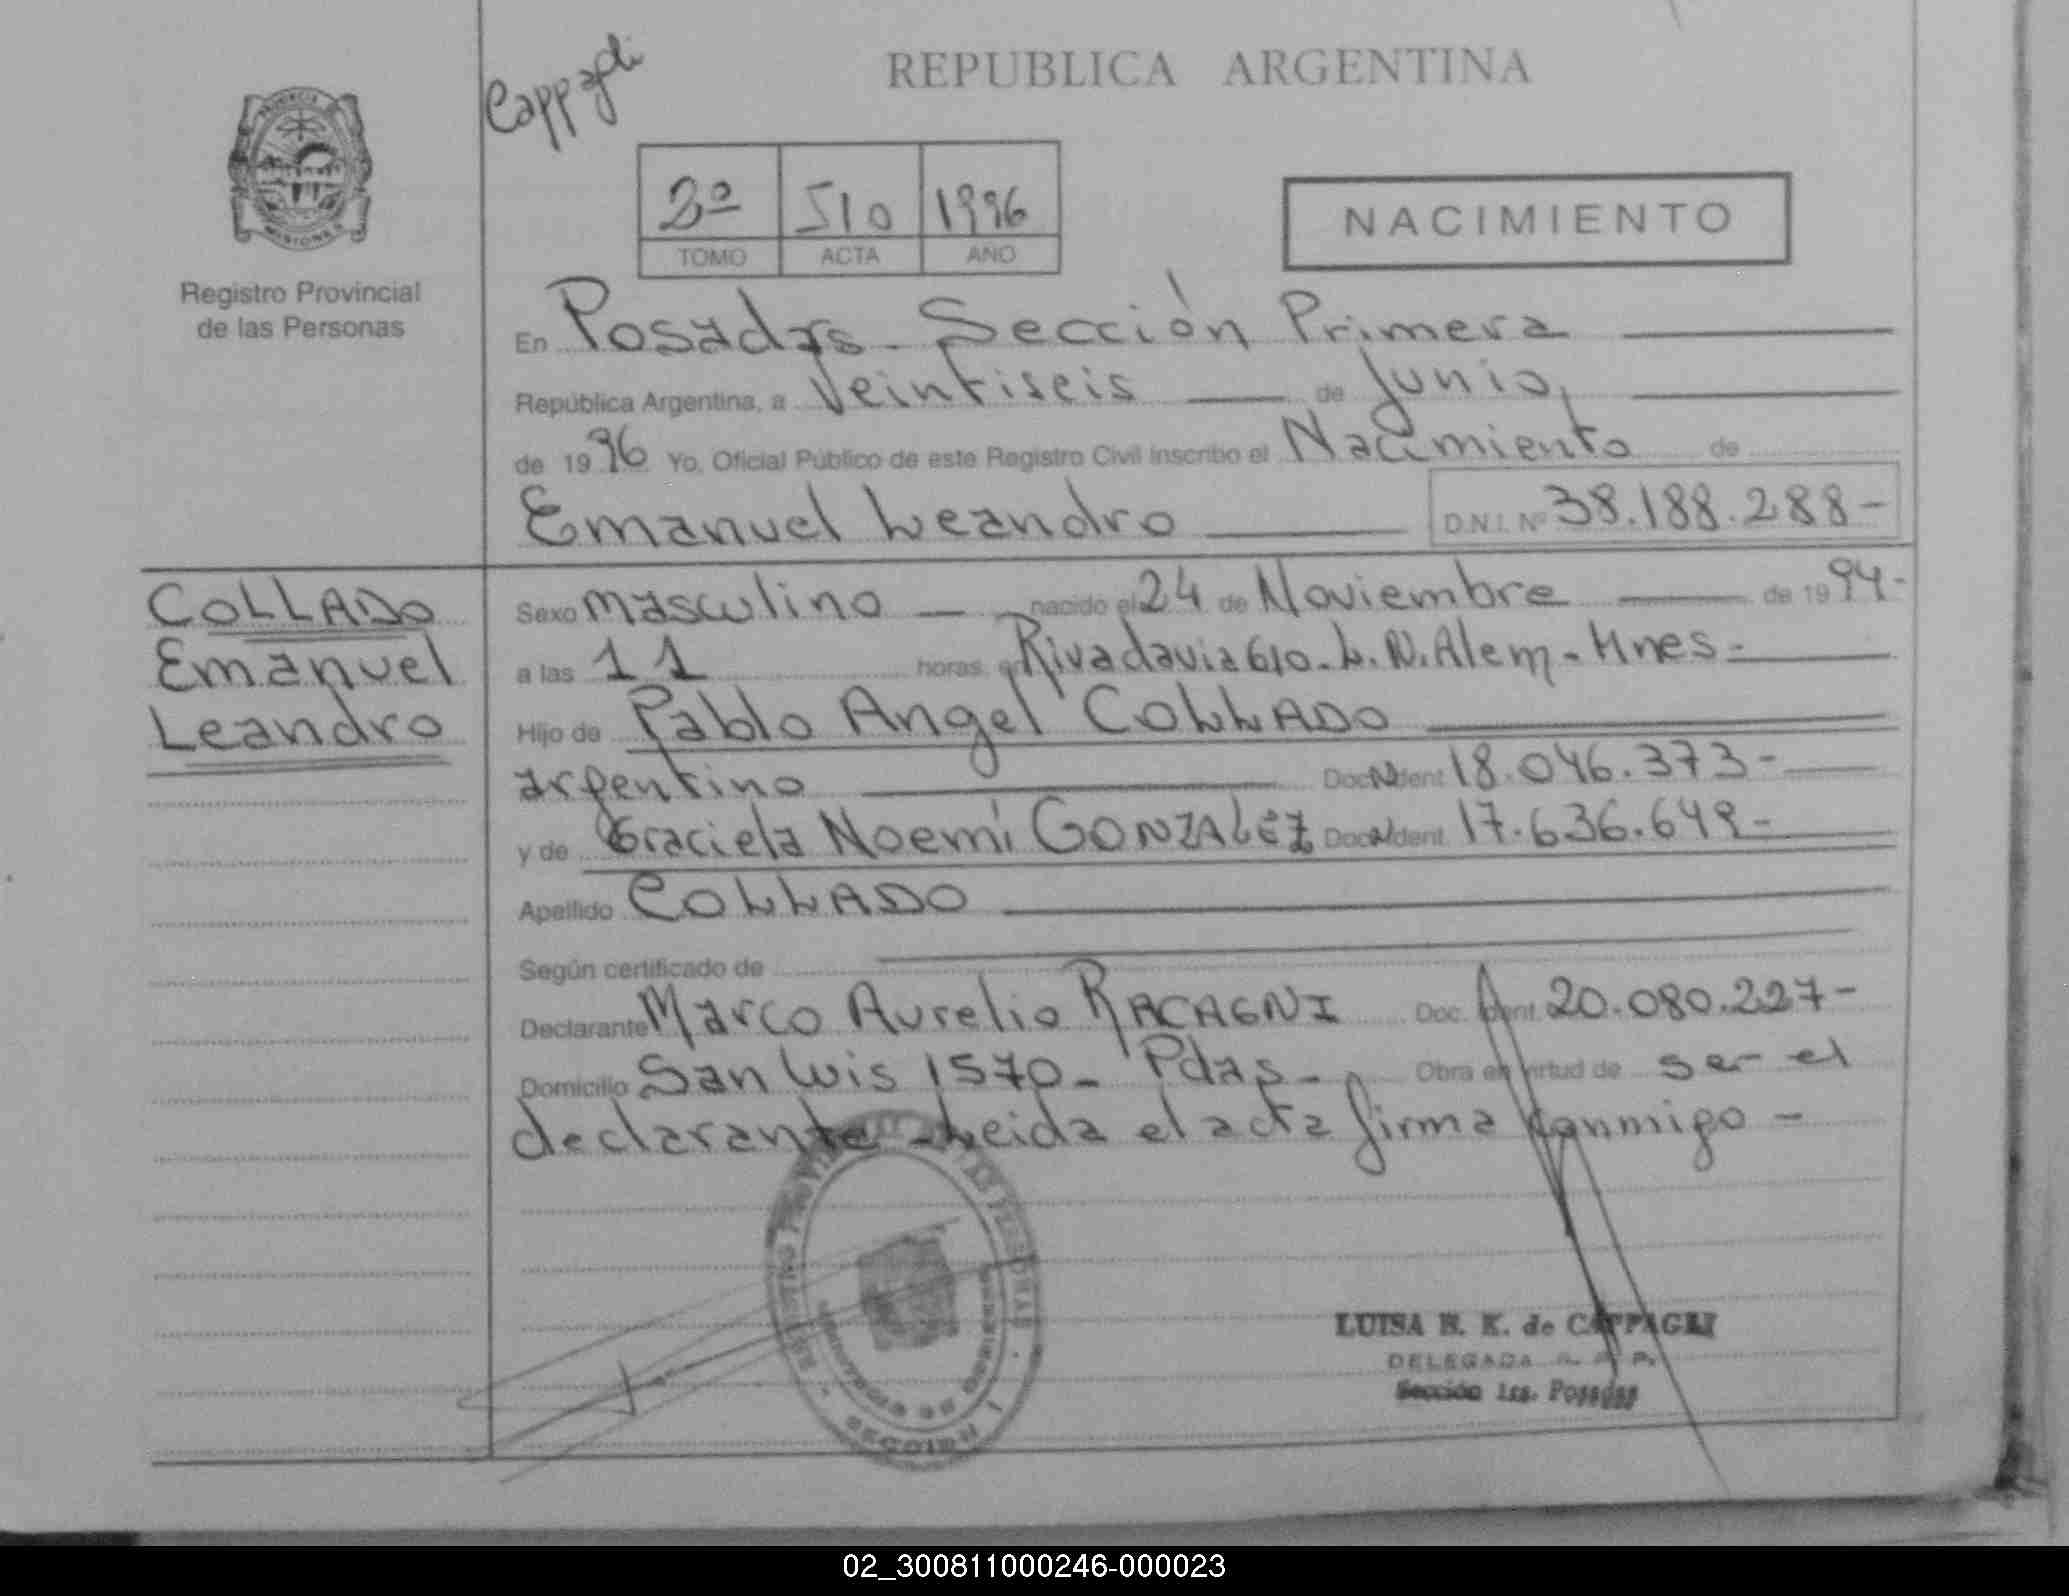 Cappagli
REPUBLICA ARGENTINA
PROVINCIA
MISIONES
Registro Provincial
de las Personas
2º 510 1996
TOMO ACTA AÑO
NACIMIENTO
En Posadas - Sección Primera
República Argentina, a Veintiseis de Junio,
de 1996 Yo, Oficial Público de este Registro Civil inscribio el Nacimiento de
Emanuel Leandro D.N.I. Nº 38.188.288-
COLLADO
Emanuel
Leandro
Sexo masculino nacido el 24 de Noviembre de 1994-
a las 11 horas, en Rivadavia 610- L. N. Alem - Mnes -
Hijo de Pablo Angel COLLADO
argentino Doc. Ident. 18.046.373-
y de Graciela Noemí GONZALEZ Doc. Ident. 17.636.649-
Apellido COLLADO
Según certificado de
Declarante Marco Aurelio RACAGNI Doc. Ident. 20.080.227-
Domicilio San Luis 1570- Pdas - Obra en virtud de ser el
declarante - Leida el acta firma conmigo -
LUISA N. K. de CAPPAGLI
DELEGADA R. P. P.
Sección 1ra. Posadas
02_300811000246-000023